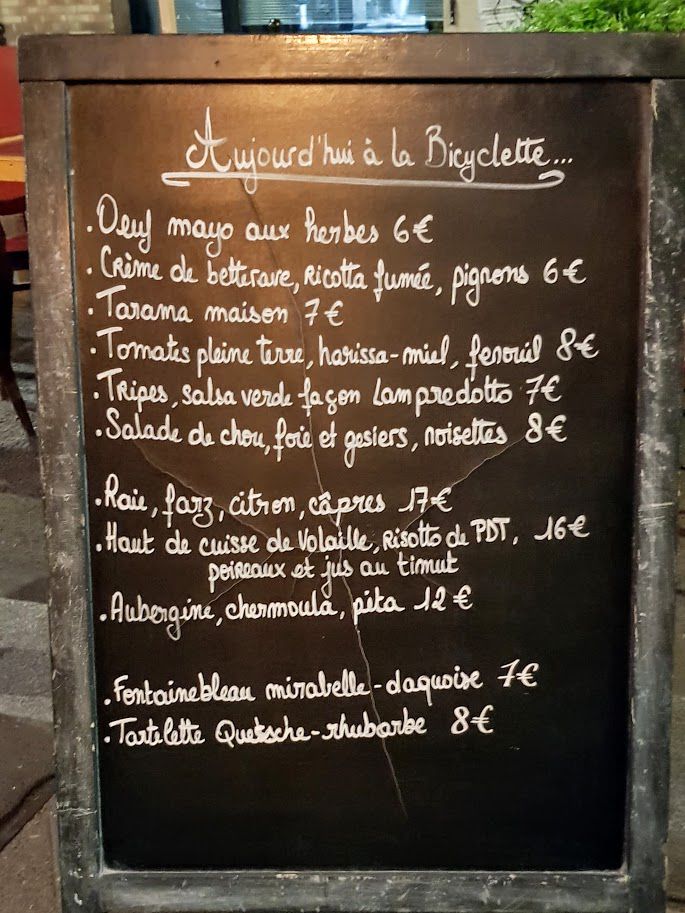 Aujourd'hui à la Bicyclette...
. Oeuf mayo aux herbes 6€
. Crème de betterave, Ricotta fumée, pignons 6€
. Tarama maison 7€
. Tomates pleine terre, harissa-miel, fenouil 8€
. Tripes, salsa verde façon Lampredotto 7€
. Salade de chou, foie et gesiers, noisettes 8€
. Raie, farz, citron, câpres 17€
. Haut de cuisse de Volaille, Risotto de PDT, 16€
poireaux et jus au timut
. Aubergine, chermoula, pita 12€
. Fontainebleau mirabelle-daquoise 7€
. Tartelette Quetsche-rhubarbe 8€